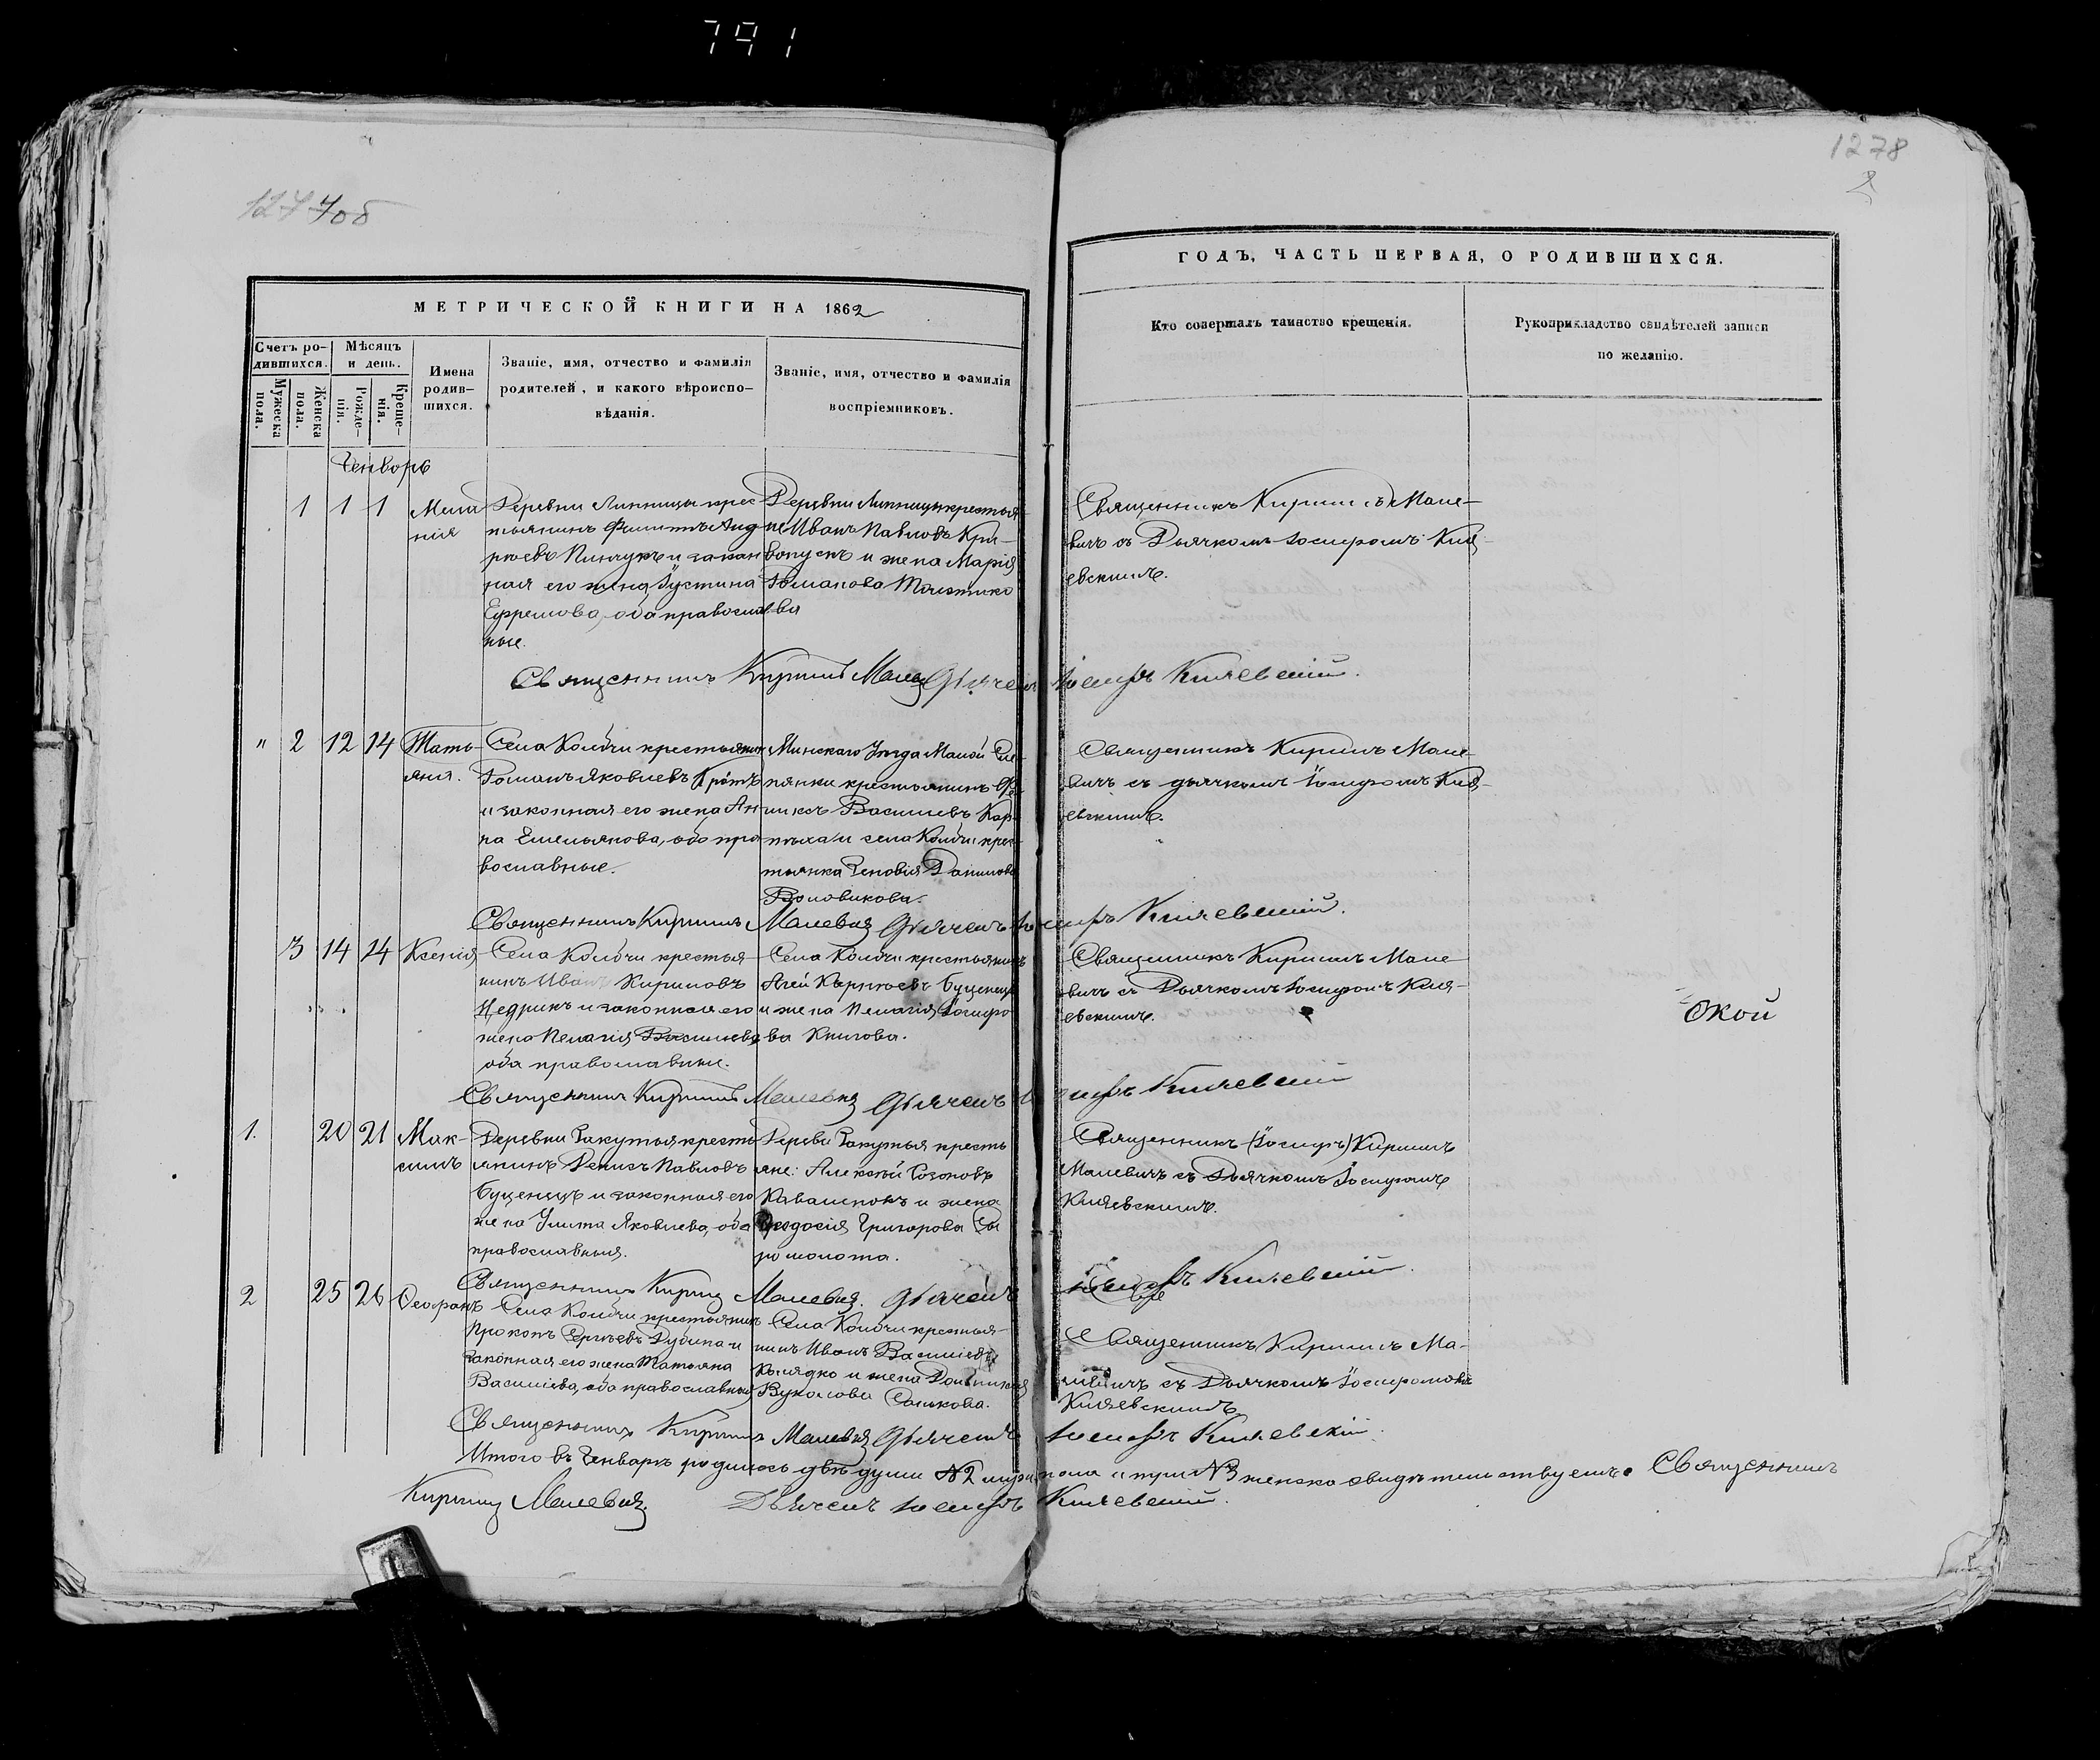 791
1277об
1278
МЕТРИЧЕСКОЙ КНИГИ НА 1862
Счетъ ро-
дившихся.
Мужеска
пола.
Женска
пола.
Мѣсяцъ
и день.
Рожде-
нія.
Креще-
нія.
Имена
родив-
шихся.
Званіе, имя, отчество и фамилія
родителей, и какого вѣроиспо-
вѣданія.
Званіе, имя, отчество и фамилія
воспріемниковъ.
ГОДЪ, ЧАСТЬ ПЕРВАЯ, О РОДИВШИХСЯ.
Кто совершалъ таинство крещенія.
Рукоприкладство свидѣтелей записи
по желанію.
Генворь
1 1 1
Мела
нія
Деревни Липницы крес
тьянинъ Филиппъ Анд
рѣевъ Пинчукъ и закон
ная его жена Іустина
Ефремова, оба православ
ные.
Деревни Липницы крестья
не Иванъ Павловъ Кри-
вопустъ и жена Марія
Романова
Священникъ Кириллъ Мале-
вичъ съ Дьячкомъ Іосифомъ Кия-
евскимъ.
Священникъ Кириллъ Малевич Дьячекъ Іосифъ Кияевскій.
" 2 12 14
Тать-
яна.
Села Колбчи крестьянин
Романъ Яковлевъ
и законная его жена Ан
на Емельянова, оба пра
вославные.
Минскаго Уѣзда Малой Сле-
пянки крестьянинъ
Василіевъ Кар-
и села Колбчи крес-
тьянка Зеновія Данилова
Воловикова.
Священникъ Кириллъ Мале-
вичъ съ дьячкомъ Іосифомъ Кия-
евскимъ.
Священникъ Кириллъ Малевич Дьячекъ Іосифъ Кияевскій.
3 14 14
Ксенія
Села Колбчи крестья-
нинъ Иванъ Кириловъ
Цедрикъ и законная его
жена Пелагія Василіева
оба православные.
Села Колбчи крестьянинъ
Буценецъ
и жена Пелагія Іосифо
ва Книгова.
Священникъ Кириллъ Мале
вичъ съ Дьячкомъ Іосифомъ Кия-
евскимъ.
Окой
Священникъ Кириллъ Малевич Дьячекъ Іосифъ Кияевскій
1. 20 21
Мак-
симъ
Деревни Закутья кресть
янинъ Денисъ Павловъ
Буценецъ и законная его
жена Улита Яковлева, оба
православныя.
Деревни Закутья кресть
яне: Алексѣй Созоновъ
Кавалионъ и жена
Феодосія Григорова Сы
ромолота.
Священникъ (Іосифъ) Кириллъ
Малевичъ съ Дьячкомъ Іосифомъ
Кияевскимъ.
Священникъ Кирилл Малевич. Дьячекъ Іосифъ Кияевскій.
2 25 26
Феофанъ
Села Колбчи крестьянин
Прокопъ Сергѣевъ Дубина и
законная его жена Татьяна
Василіева, оба православныя
Села Колбчи крестья-
нинъ Иванъ Василіевъ
Колядко и жена Домникия
Вуколова Санькова.
Священникъ Кириллъ Ма-
левичъ съ Дьячкомъ Іосифомъ
Кияевскимъ
Священникъ Кириллъ Малевич Дьячекъ Іосифъ Кияевскій.
Итого въ Генварѣ родилось двѣ души №2 мужи. пола и три №3 женска свидѣтельствуемъ. Священникъ
Кирилл Малевич. Дьячекъ Іосифъ Кияевскій.